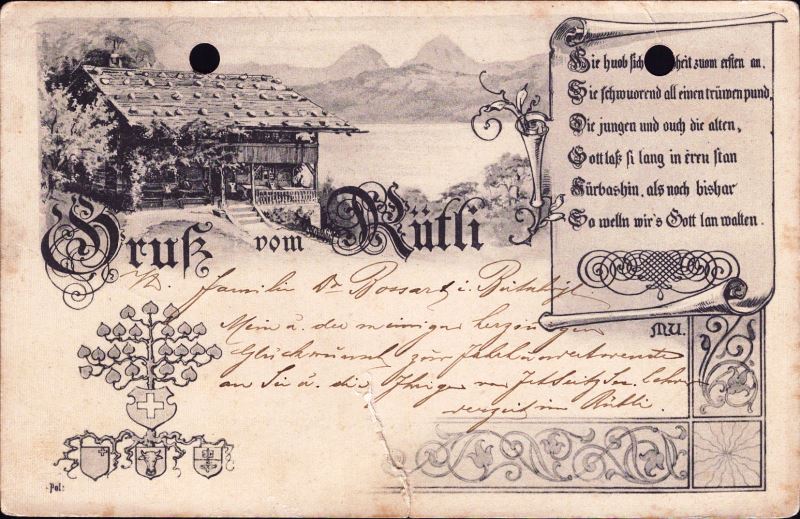 Hie huob sich heit zuom ersten an.
Sie schwuorend all einen trüwen pund,
Die jungen und ouch die alten,
Gott laß si lang in eren stan
Fürbashin, als noch bishar
So welln wir's Gott lan walten.
Gruß vom Rütli
MU.
Familie Dr Bossart i.
Mein u. der meinigen
Glückwunsch zur
an Sie u. die Ihrigen von
derzeit im Rütli.
Pol: